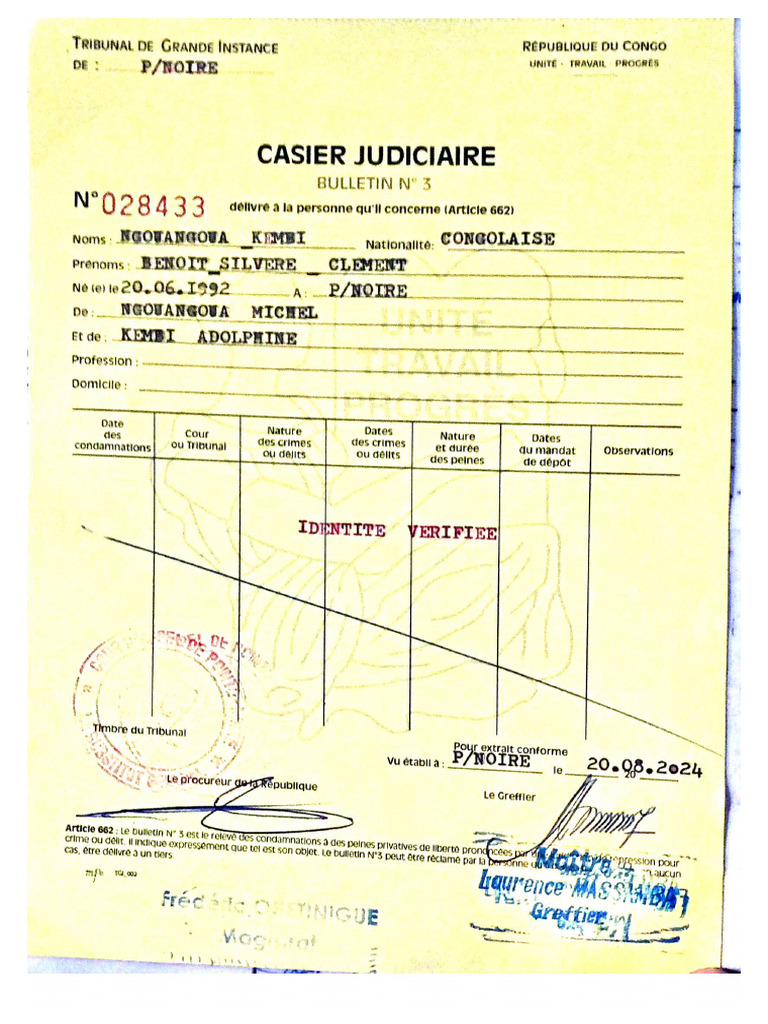 TRIBUNAL DE GRANDE INSTANCE
DE : P/NOIRE
RÉPUBLIQUE DU CONGO
UNITÉ - TRAVAIL - PROGRÈS
CASIER JUDICIAIRE
BULLETIN N° 3
N° 028433 délivré à la personne qu'il concerne (Article 662)
Noms : NGOUANGOUA _KEMBI Nationalité: CONGOLAISE
Prénoms : BENOIT_SILVERE _ CLEMENT
Né (e) le 20.06.1992 A : P/NOIRE
De : NGOUANGOUA MICHEL
Et de : KEMBI ADOLPHINE
Profession :
Domicile :
UNITÉ
TRAVAIL
PROGRÈS
Date des condamnations
Cour ou Tribunal
Nature des crimes ou délits
Dates des crimes ou délits
Nature et durée des peines
Dates du mandat de dépôt
Observations
IDENTITE VERIFIEE
Timbre du Tribunal
Pour extrait conforme
Vu établi à : P/NOIRE le 20.08.2024
20
Le procureur de la République
Le Greffier
Article 662 : Le bulletin N° 3 est le relevé des condamnations à des peines privatives de liberté prononcées par répression pour
crime ou délit. Il indique expressément que tel est son objet. Le bulletin N°3 peut être réclamé par la personne aucun
cas, être délivré à un tiers.
Maître
Laurence MASSAMBA
Greffier
Frédéric
Magistrat